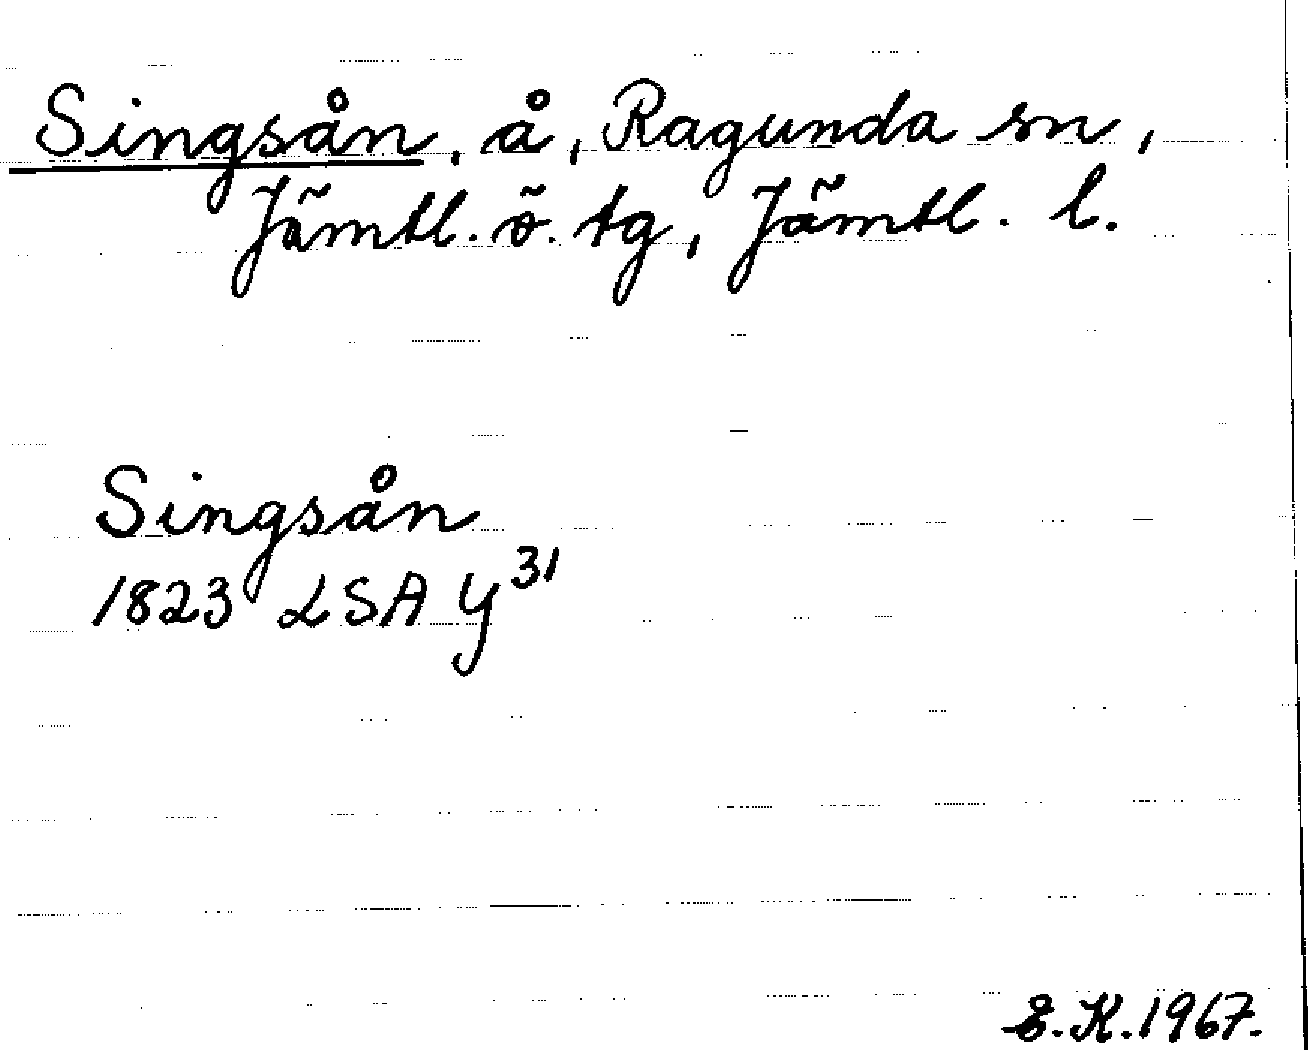 Singsån, å, Ragunda sn,
Jämtl. ö. tg, Jämtl. l.
Singsån
1823 LSA Y³¹
E.K. 1967.